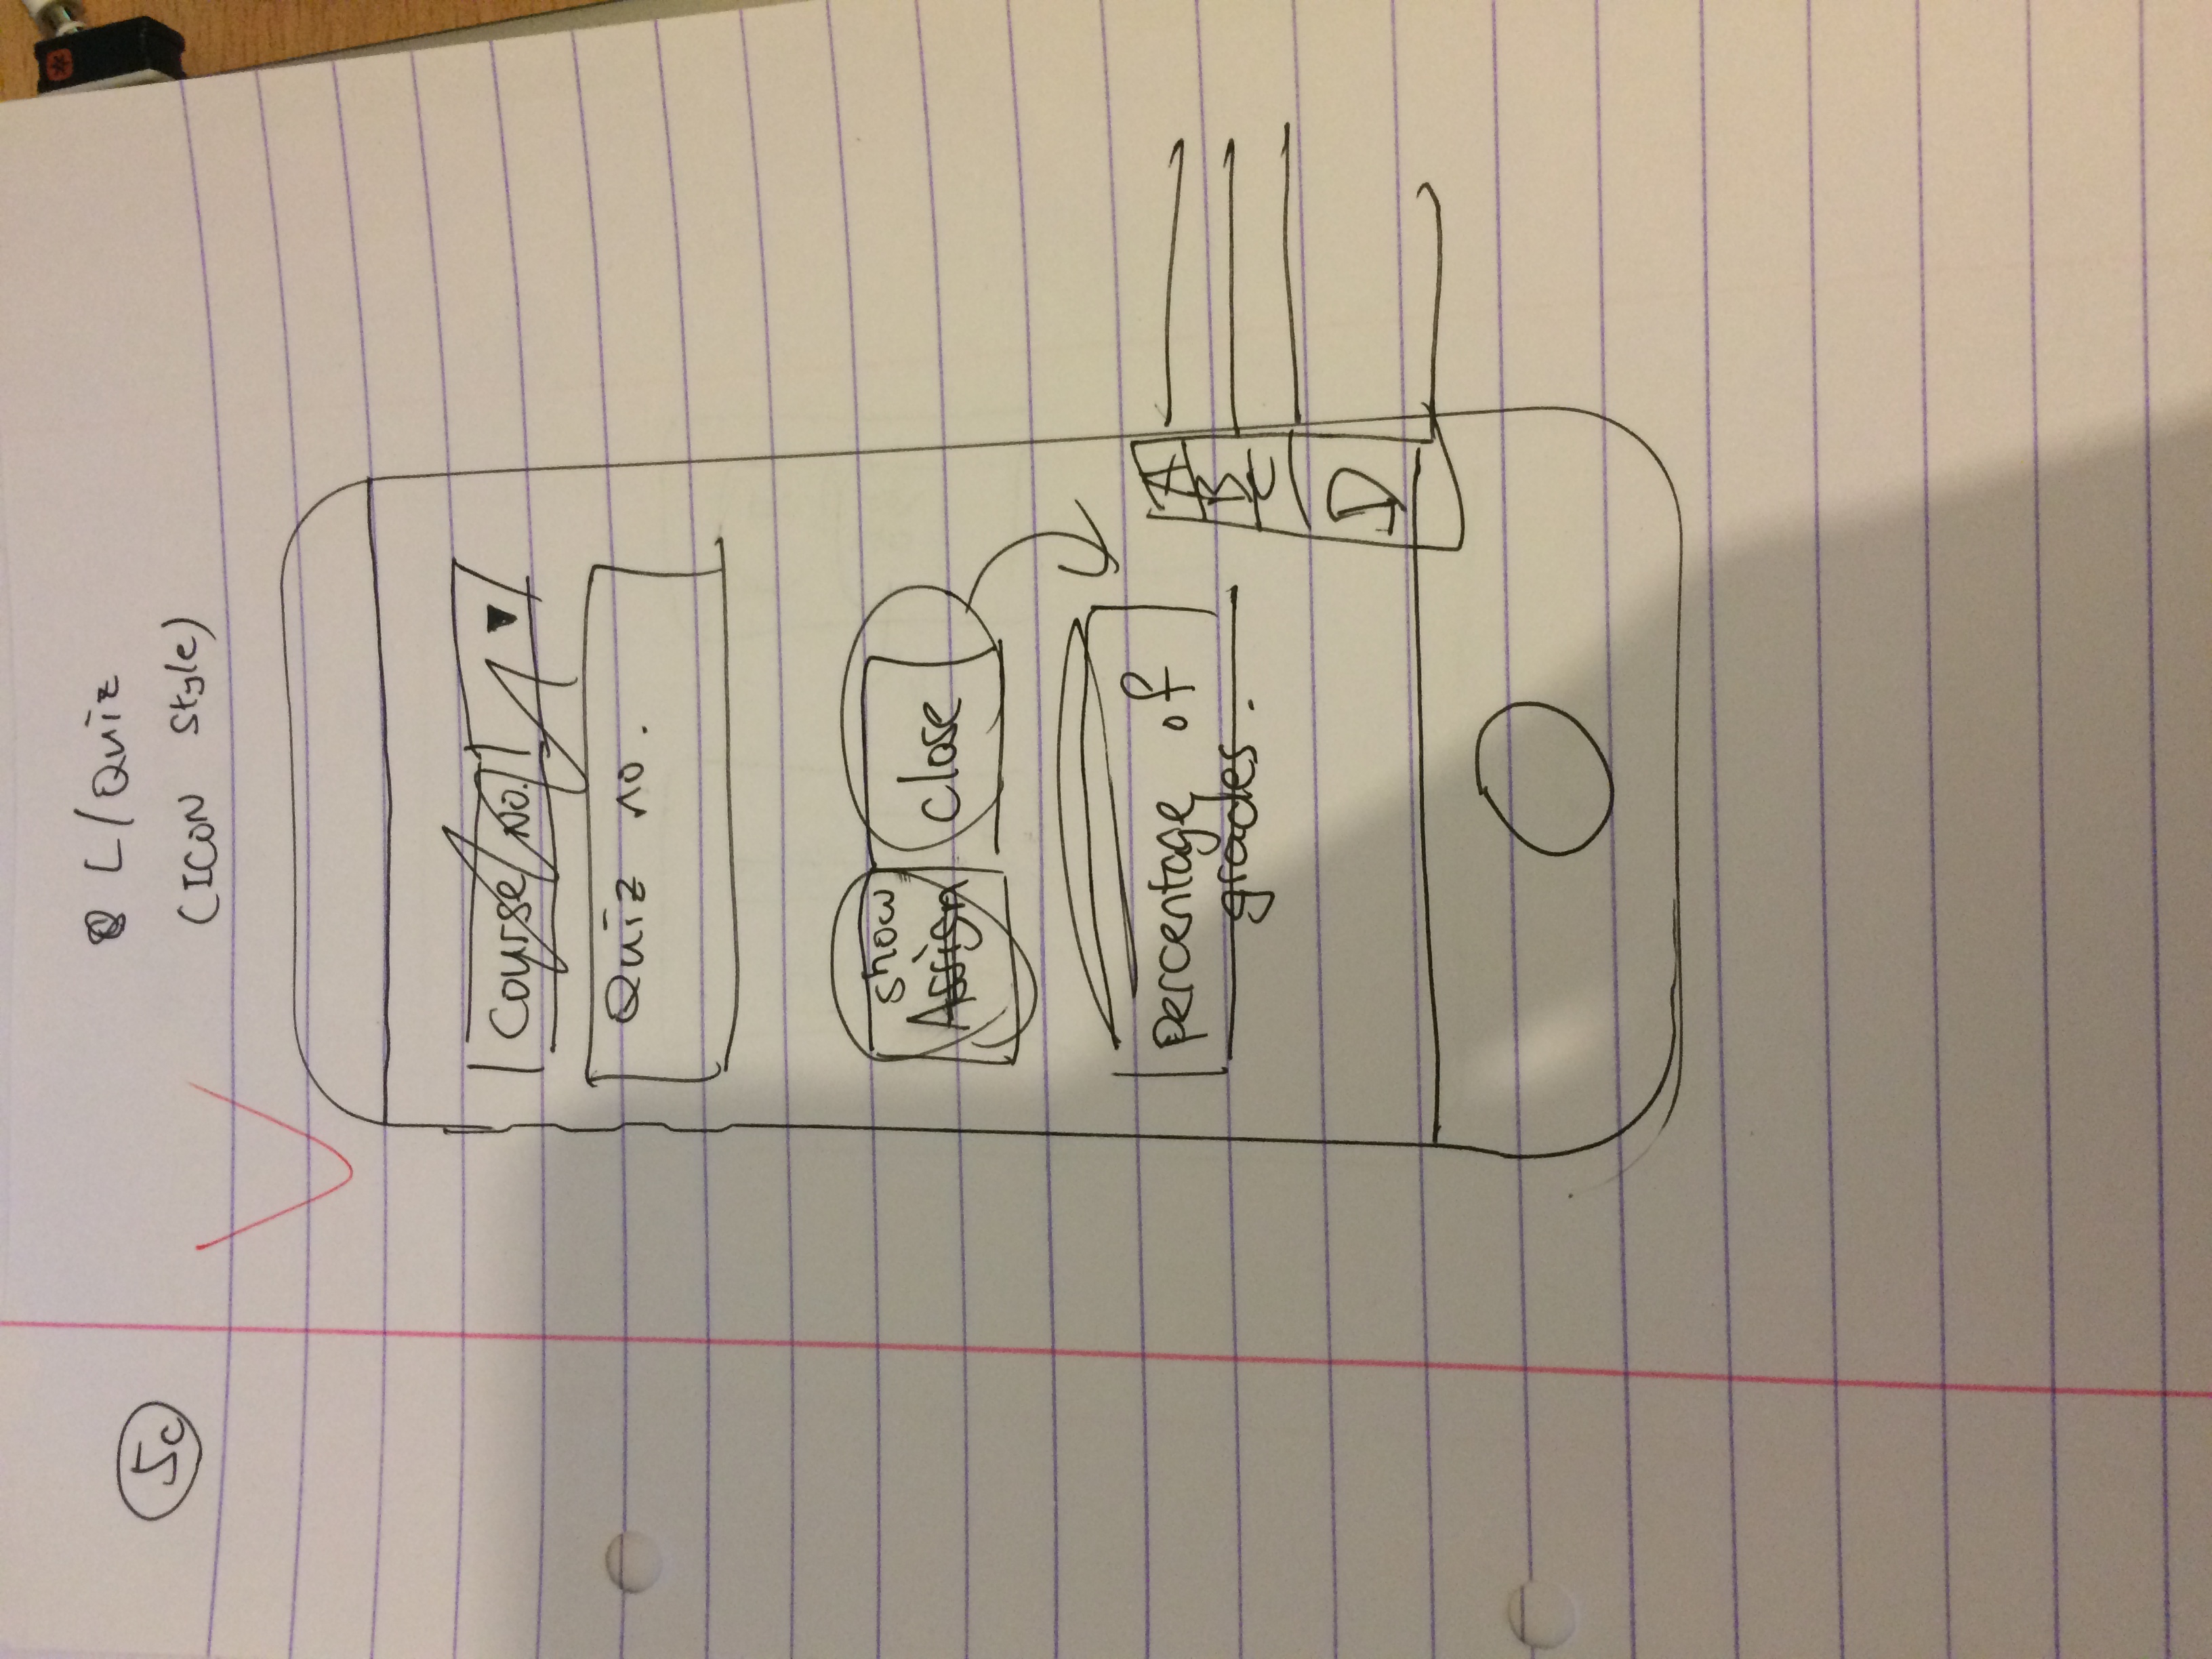 5c
L/Quiz
(ICON Style)
Course No. ▼
Quiz no.
show
Assign
close
percentage of
grades.
A
B
C
D